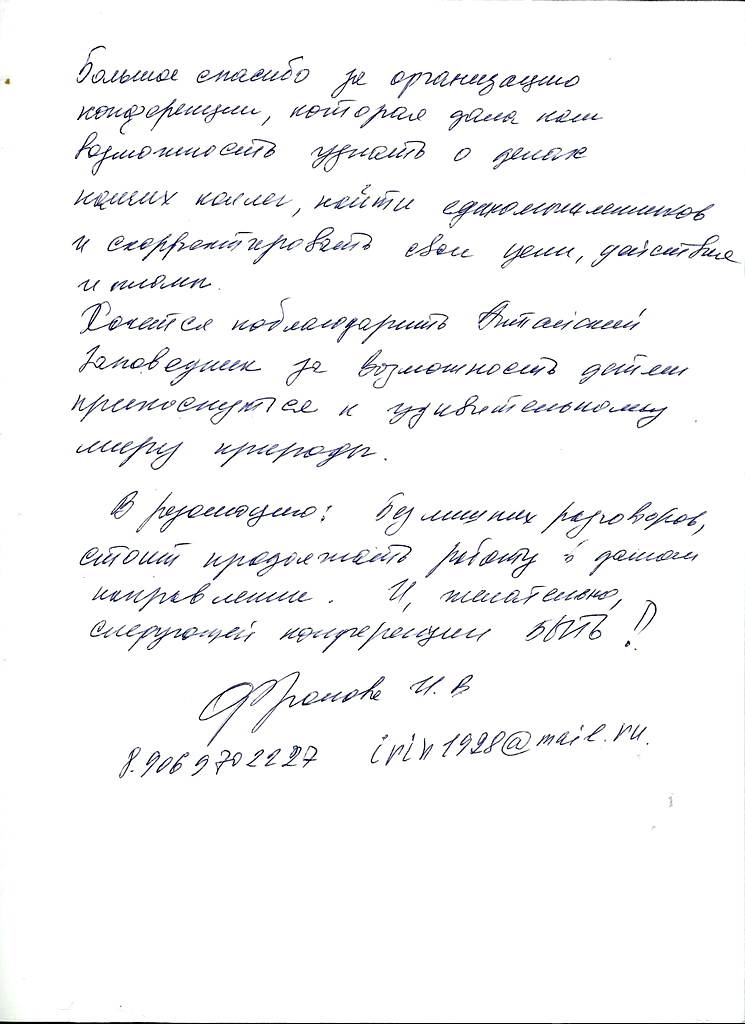 Большое спасибо за организацию
конференции, которая дала нам
возможность узнать о делах
наших коллег, найти единомышленников
и скорректировать свои цели, действия
и планы.
Хочется поблагодарить Алтайский
Заповедник за возможность детям
прикоснуться к удивительному
миру природы.
В резолюцию: Без лишних разговоров,
стоит продолжать работу в данном
направлении. И, желательно,
следующей конференции БЫТЬ!!
Громова И. В
8.906 970 22 27 irin1928@mail.ru.